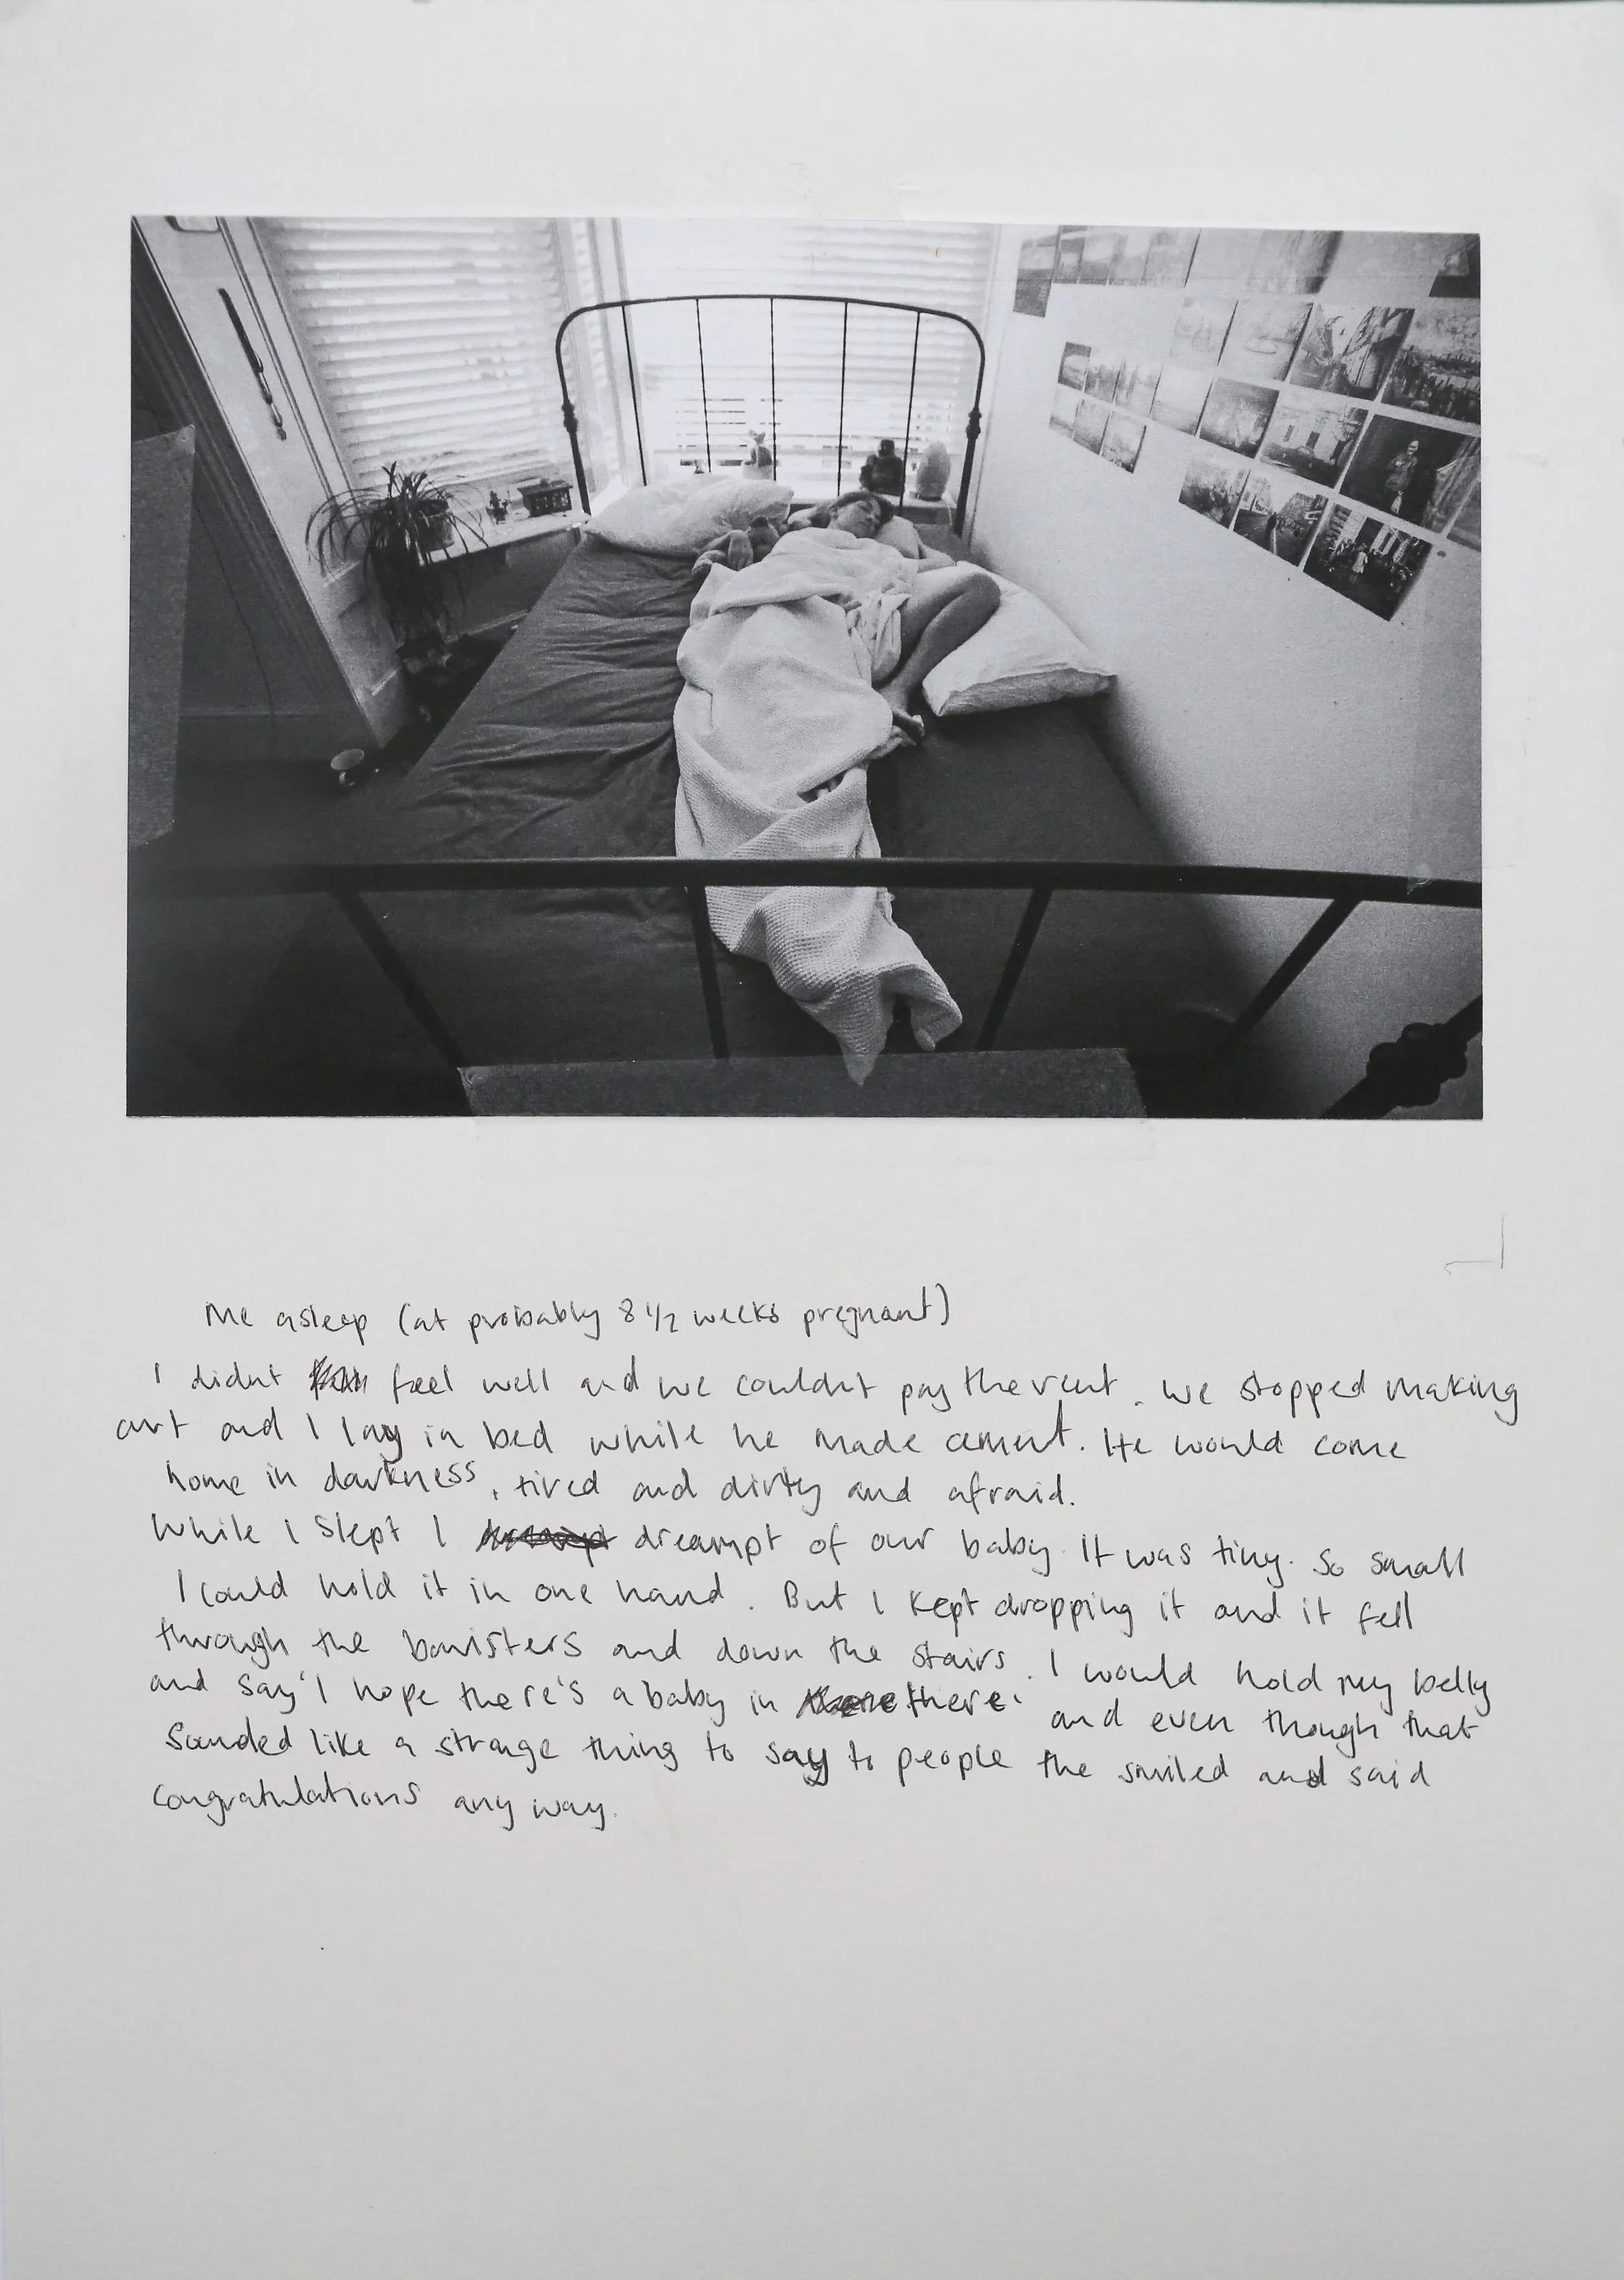 Me asleep (at probably 8 1/2 weeks pregnant)
I didnt feel well and we couldnt pay the rent. We stopped making
art and I lay in bed while he made cement. He would come
home in darkness, tired and dirty and afraid.
While I slept I dreampt of our baby. It was tiny. So small
I could hold it in one hand. But I kept dropping it and it fell
through the banisters and down the stairs. I would hold my belly
and say 'I hope there's a baby in there' and even though that
Sounded like a strange thing to say to people the smiled and said
Congratulations any way.